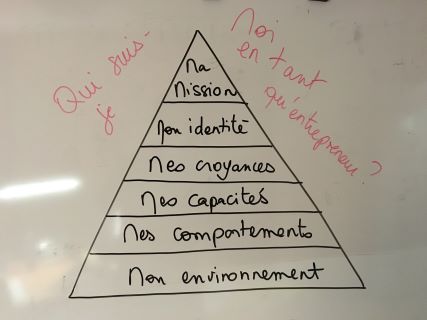 Qui suis-
je
Moi
en tant
qu'entrepreneur ?
Ma
Mission
Mon identité
Mes croyances
Mes capacités
Mes comportements
Mon environnement